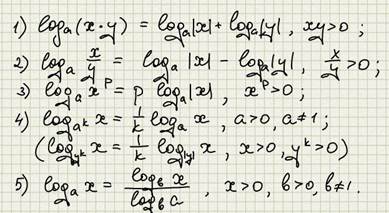 1) logₐ(x·y) = logₐ|x| + logₐ|y| , xy>0 ;
2) logₐ x/y = logₐ|x| − logₐ|y| , x/y>0 ;
3) logₐ xᵖ = p logₐ|x| , xᵖ>0 ;
4) log_{aᵏ} x = 1/k logₐ x , a>0, a≠1 ;
(log_{yᵏ} x = 1/k log_{|y|} x , x>0, yᵏ>0)
5) logₐ x = log_b x / log_b a , x>0, b>0, b≠1.